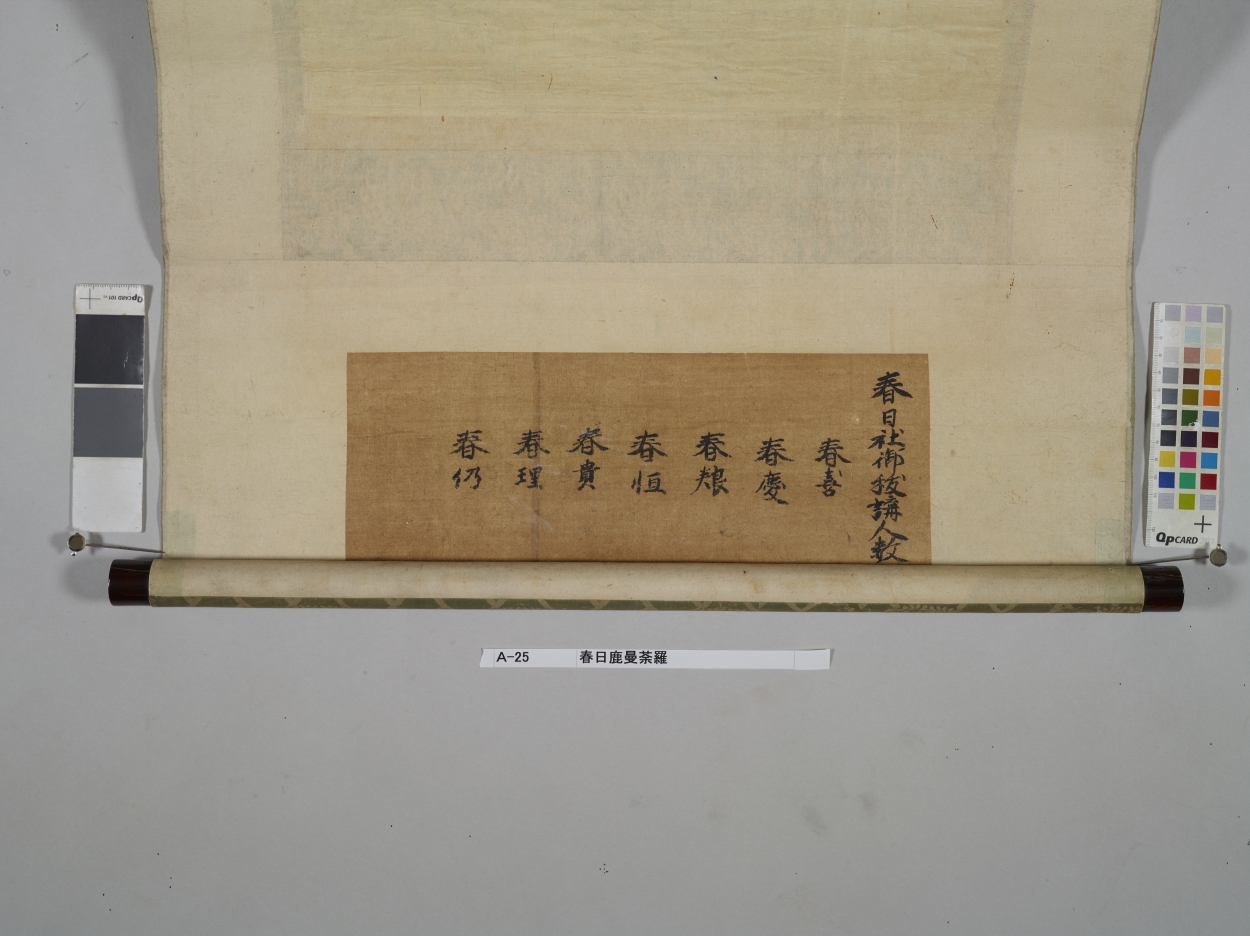 春日社御祓講人数
春喜
春慶
春粮
春恒
春貴
春理
春仍
A-25 春日鹿曼荼羅
QPCARD 101
QPCARD